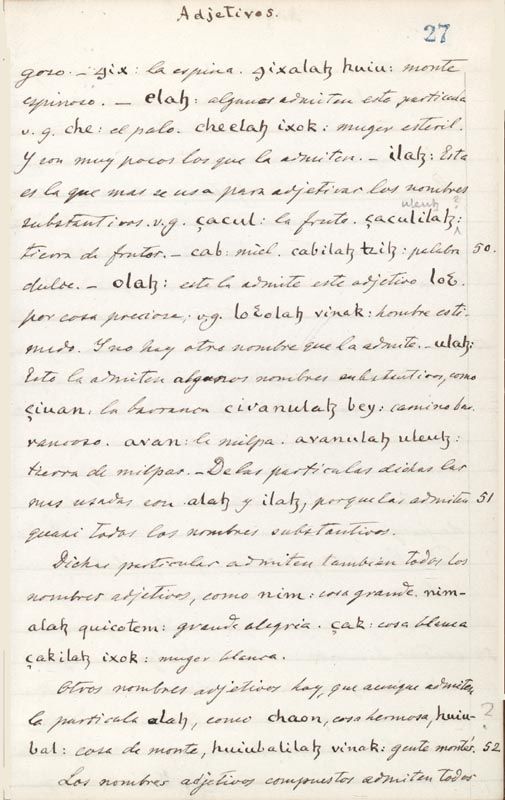 Adjetivos.
27
goso. — gix: la espina. gixalaꜩ huiu: monte
espinoso. — elaꜩ: algunos admiten esta particula
v. g. che: el palo. cheelaꜩ ixok: muger esteril.
Y son muy pocos los que la admiten. — ilaꜩ: Esta
es la que mas se usa para adjetivar los nombres
uleuꜩ ?
substantivos. v.g. çacul: la fruta. çaculilaꜩ:
tierra de frutas. — cab: miel. cabilaꜩ tziꜩ: palabra 50.
dulce. — olaꜩ: esta la admite este adjetivo loε.
por cosa preciosa; v.g. loεolaꜩ vinak: hombre esti-
mado. Y no hay otro nombre que la admita. — ulaꜩ:
Esto la admiten algunos nombres substantivos, como
çiuan: la barranca civanulaꜩ bey: camino bar-
rancoso. avan: la milpa. avanulaꜩ uleuꜩ:
tierra de milpas. — De las particulas dichas las
mas usadas son alaꜩ y ilaꜩ, porque las admiten 51
quasi todos los nombres substantivos.
Dichas particulas admiten tambien todos los
nombres adjetivos, como nim: cosa grande. nim-
alaꜩ quicotem: grande alegria. çak: cosa blanca
çakilaꜩ ixok: muger blanca.
Otros nombres adjetivos hay, que aunque admiten
la particula alaꜩ, como chaon, cosa hermosa, huiu- ?
bal: cosa de monte, huiubalilaꜩ vinak: gente montés. 52
Los nombres adjetivos compuestos admiten todos